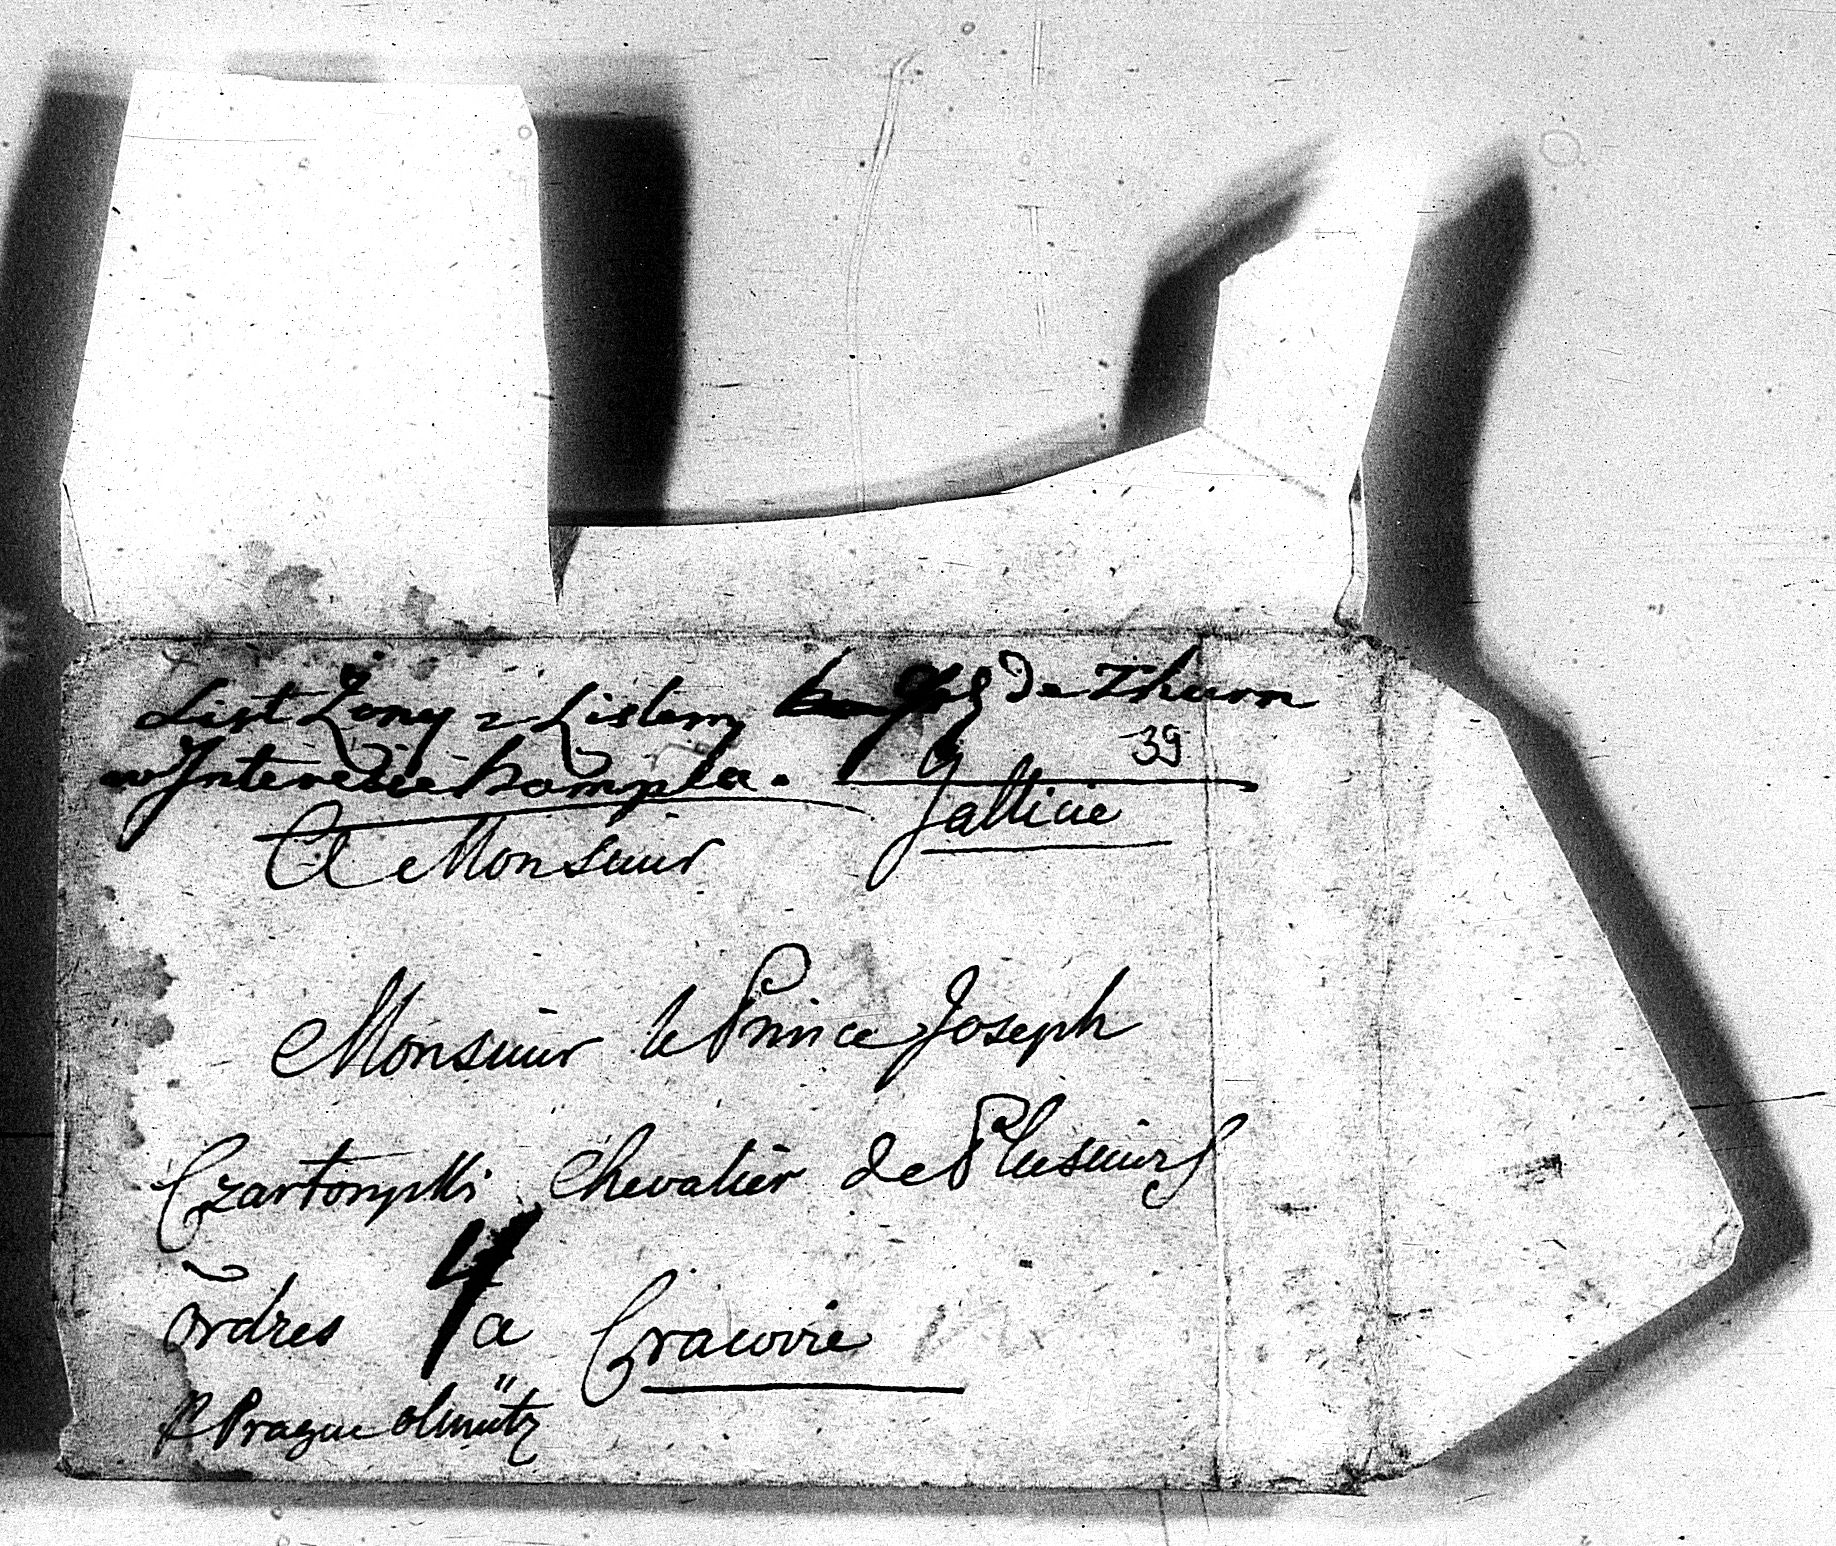 List Żony z Listem de Thurn
w Interesie hompla.
39
Gallicie
A Monsieur
Monsieur le Prince Joseph
Czartoryski Chevalier de Plusieurs
ordres 4 a Cracovie
p Prague Olmütz